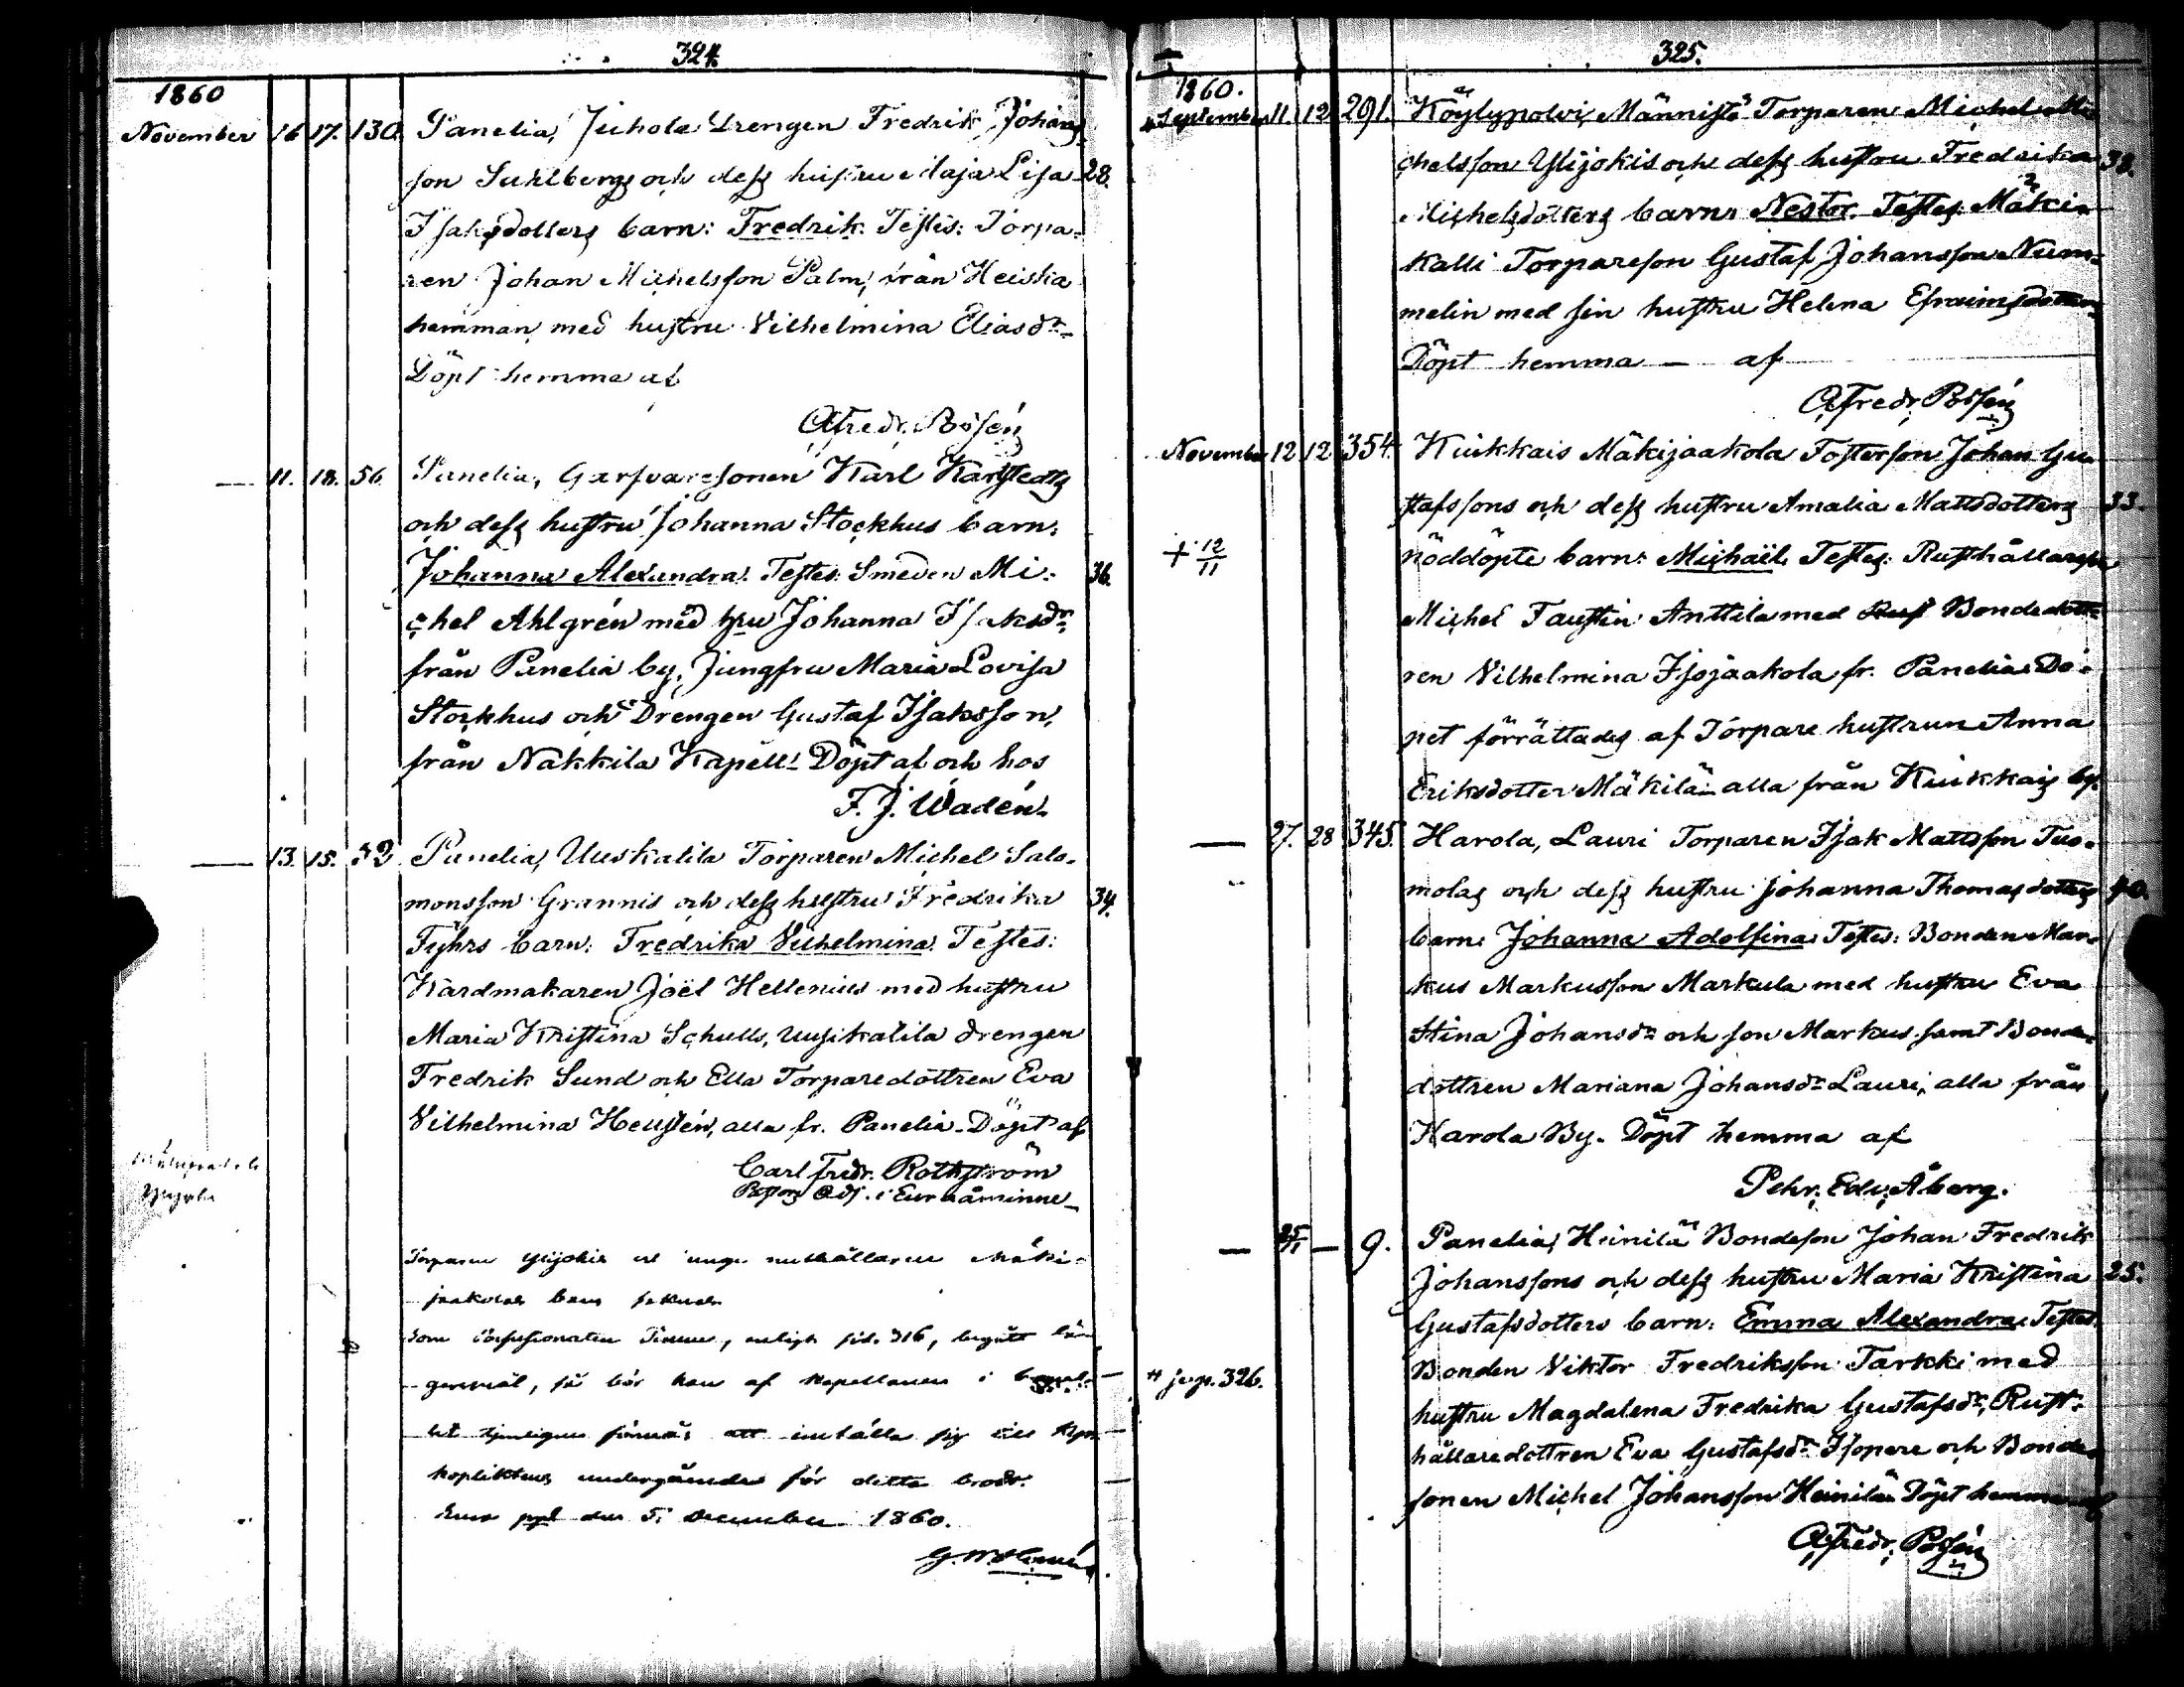 324.
1860
November 16. 17. 130. Panelia, Juhola Drengen Fredrik Johans-
son Suhlbergs och dess hustru Maja Lisa 28.
Isaksdotters barn: Fredrik. Testes: Torpa-
ren Johan Michelsson Palm, från Heiska
hemman, med hustru Vilhelmina Eliasdr
Döpt hemma af
A. Fredr. Rosén
— 11. 18. 56. Panelia, Garfvaresonen Karl Karlstedts
och dess hustru Johanna Stockhus barn:
Johanna Alexandra. Testes: Smeden Mi- 36.
chel Ahlgrén med hru Johanna Isaksdr,
från Panelia by, Jungfru Maria Lovisa
Stockhus och Drengen Gustaf Isaksson,
från Nakkila Kapell. Döpt af och hos
F. J. Wadén.
— 13. 15. 32 Panelia, Uuskalila Torparen Michel Salo-
monsson Grannis och dess hustru Fredrika 34.
Fyhrs barn: Fredrika Vilhelmina. Testes:
Kardmakaren Joël Hellenius med hustru
Maria Kristina Schulls, Uusikalila drengen
Fredrik Sund och Ella Torparedottren Eva
Vilhelmina Hellstén, alla fr. Panelia. Döpt af
Carl Fredr. Rothström
Past. Adj. i Euraåminne
Torparen Ylijokis
jaakolas barn
som enligt sid. 316, begått
af Kapellanen i
att inställa sig till
undergående för detta brott.
Eura den 5 December 1860.
325.
1860.
September 11. 12 291. Köylypolvi, Männistö Torparen Michel Mi-
chelsson Ylijokis och dess hustru Fredrika 38.
Michelsdotters barn: Nestor. Testes: Mäki-
kalli Torpareson Gustaf Johansson Num-
melin med sin hustru Helena Efraimsdotter
Döpt hemma — af
A. Fredr. Rosén
November 12 12 354. Kiukkais Mäkijaakola Fosterson Johan Gu-
stafssons och dess hustru Amalia Mattsdotters 33.
+ 12/11 nöddöpte barn: Michaël. Testes: Rusthållareson
Michel Faustin Anttila med Rust Bondedott-
ren Vilhelmina Isojaakola fr. Panelia. Do-
pet förrättades af Torpare hustrun Anna
Eriksdotter Mäkilä alla från Kiukkais by.
— 27. 28 345. Harola, Lauri Torparen Isak Mattsson Tuo-
molas och dess hustru Johanna Thomasdotters 40.
barn: Johanna Adolfina. Testes: Bonden Mar-
kus Markusson Markula med hustru Eva
Stina Johansdr och son Markus samt Bonde-
dottren Mariana Johansdr Lauri, alla från
Harola By. Döpt hemma af
Pehr. Edv. Åberg.
— — 9. Panelia, Heinilä Bondeson Johan Fredrik
Johanssons och dess hustru Maria Kristina 25.
Gustafsdotters barn: Emma Alexandra. Testes:
Bonden Viktor Fredriksson Tarkki med
# p. 326.
hustru Magdalena Fredrika Gustafsdr, Rust-
hållaredottren Eva Gustafsdr Isopere och Bonde-
sonen Michel Johansson Heinilä. Döpt hemma af
A. Fredr. Rosén